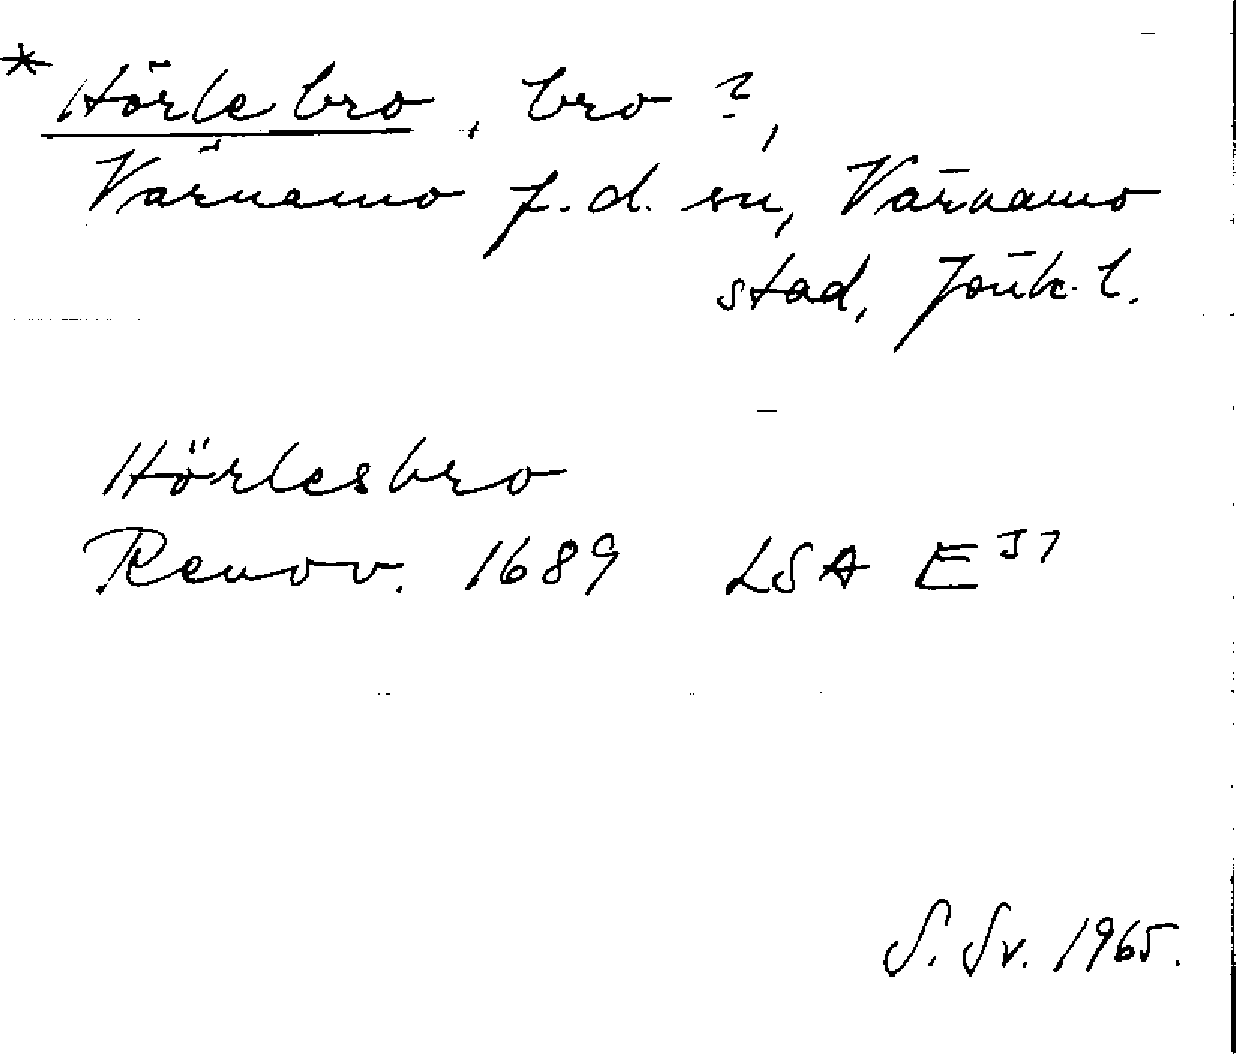 * Hörle bro, bro?,
Värnamo f.d. sn, Värnamo
stad, Jönk. l.
Hörlesbro
Renov. 1689 LSA E 37
S. Sv. 1965.